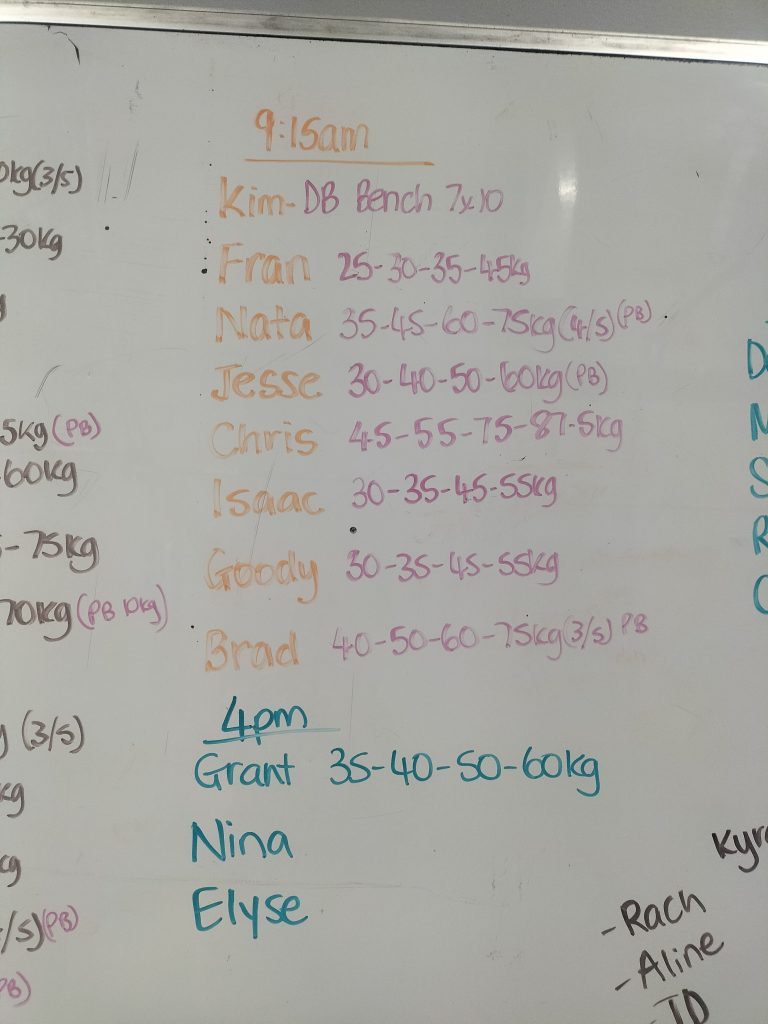 9:15am
Kim- DB Bench 7x10
Fran 25-30-35-45kg
Nata 35-45-60-75kg(4/5)(PB)
Jesse 30-40-50-60kg(PB)
Chris 45-55-75-87.5kg
Isaac 30-35-45-55kg
Goody 30-35-45-55kg
Brad 40-50-60-75kg(3/5) PB
4pm
Grant 35-40-50-60kg
Nina
Elyse
0kg(3/5)
-30kg
5kg(PB)
-60kg
-75kg
70kg(PB 10kg)
(3/5)
kg
kg
/5)(PB)
PB)
Kyr
-Rach
-Aline
-JD